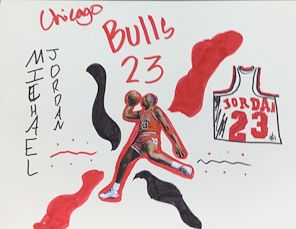 Chicago
Bulls
23
MICHAEL
JORDAN
JORDAN
23
23